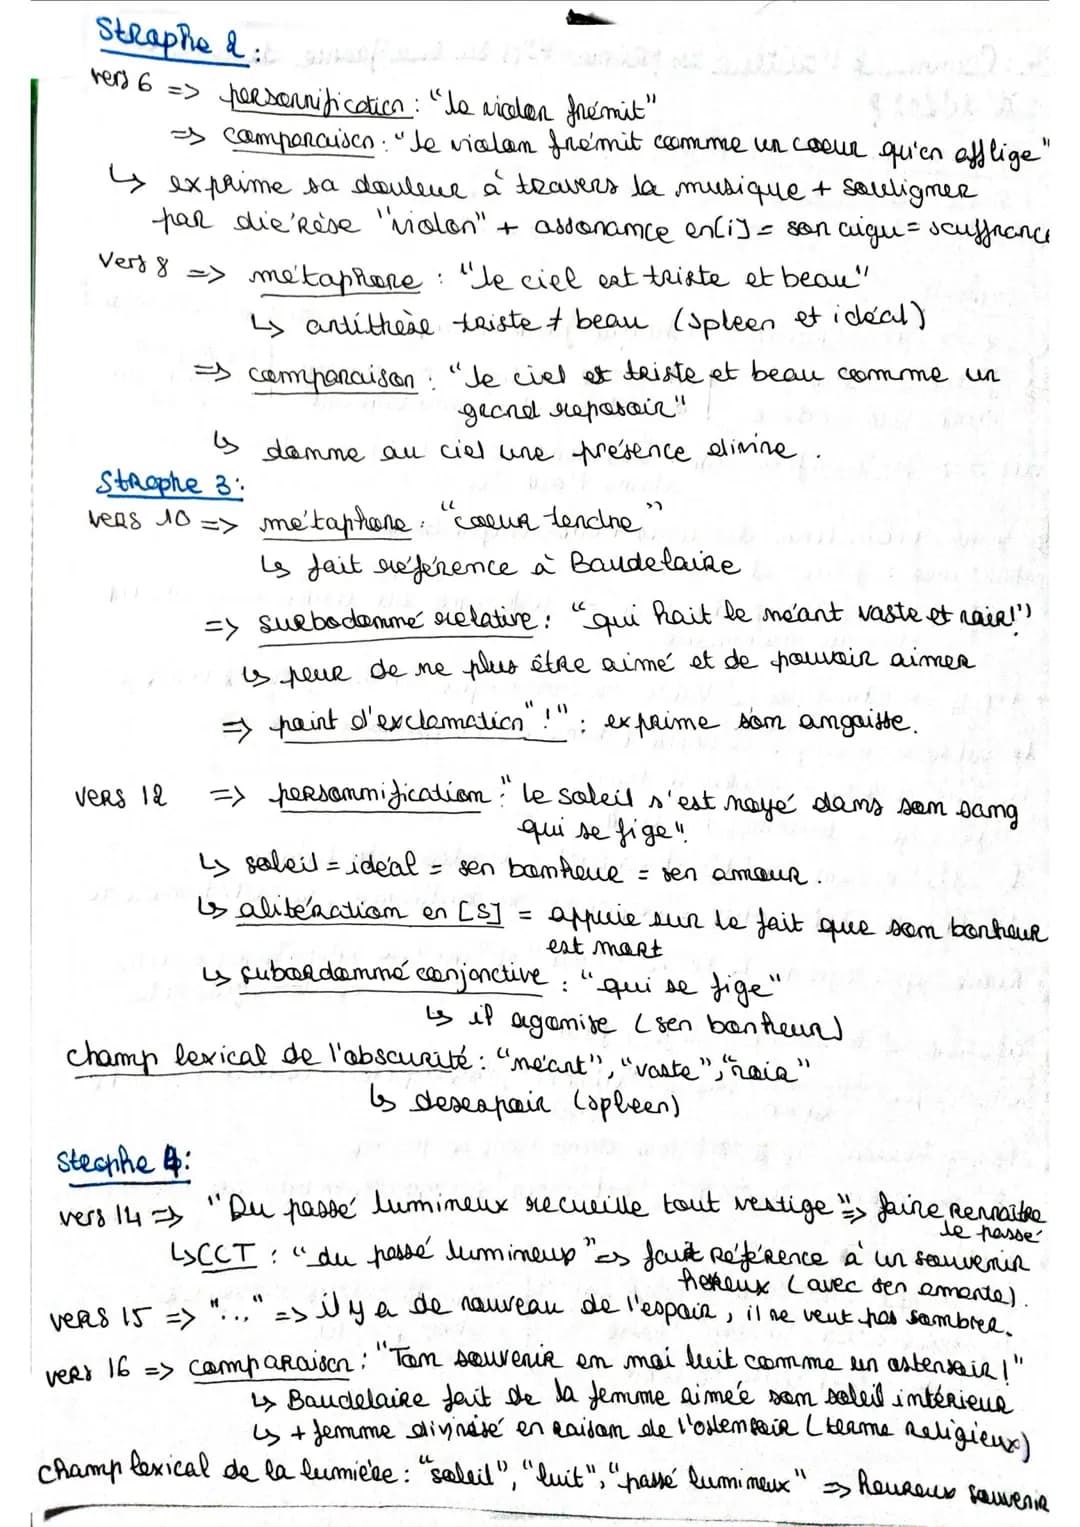 Strophe 2 :
vers 6 => personnification : "le violon frémit"
=> comparaison : "le violon frémit comme un coeur qu'on afflige"
↳ exprime sa douleur à travers la musique + souligner
par dièrèse "violon" + assonance en [i] = son aigu = souffrance
Vers 8 => métaphore : "le ciel est triste et beau"
↳ antithèse triste ≠ beau (spleen et idéal)
=> comparaison : "le ciel est triste et beau comme un
grand reposoir"
↳ donne au ciel une présence divine.
Strophe 3 :
vers 10 => métaphore : "coeur tendre"
↳ fait référence à Baudelaire
=> surbodonné relative : "qui hait le néant vaste et noir!"
↳ peur de ne plus être aimé et de pouvoir aimer
=> point d'exclamation "!" : exprime son angoisse.
vers 12 => personnification : "le soleil s'est noyé dans son sang
qui se fige"
↳ soleil = idéal = son bonheur = son amour.
↳ alitération en [S] = appuie sur le fait que son bonheur
est mort
↳ subordonné conjonctive : "qui se fige"
↳ il agonise (son bonheur)
champ lexical de l'obscurité : "néant", "vaste", "noir"
↳ desespoir (spleen)
Strophe 4 :
vers 14 => "Du passé lumineux recueille tout vestige" => faire Rennaître
le passé
↳ CCT : "du passé lumineux" => fait Référence à un souvenir
hereux (avec son amante).
vers 15 => "..." => il y a de nouveau de l'espoir, il ne veut pas sombrer.
vers 16 => comparaison : "Ton souvenir en moi luit comme un ostensoir !"
↳ Baudelaire fait de la femme aimée son soleil intérieur
↳ + femme divinisé en raison de l'ostensoir (terme religieux)
champ lexical de la lumière : "soleil", "luit", "passé lumineux" => heureux souvenir